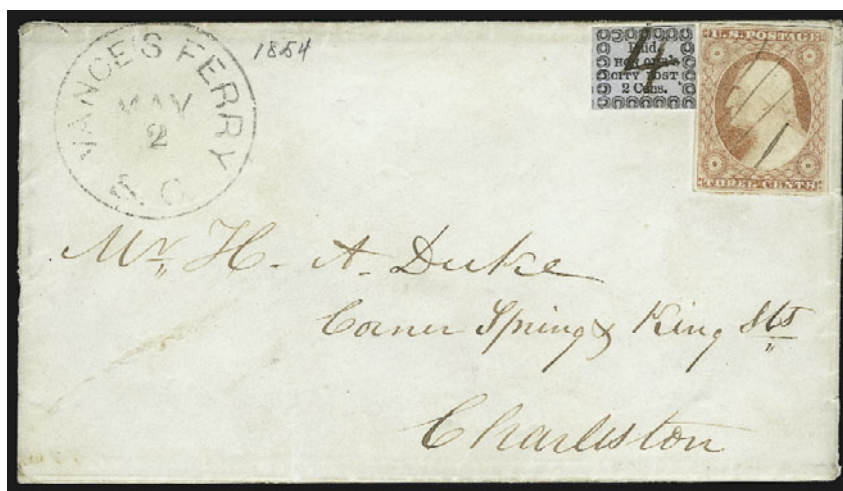 VANCE'S FERRY
MAY
2
S. C.
1854
Paid
HONOUR'S
CITY POST
2 Cens.
4
U.S. POSTAGE
THREE CENTS
Mr. H. A. Duke
Corner Spring & King Sts
Charleston